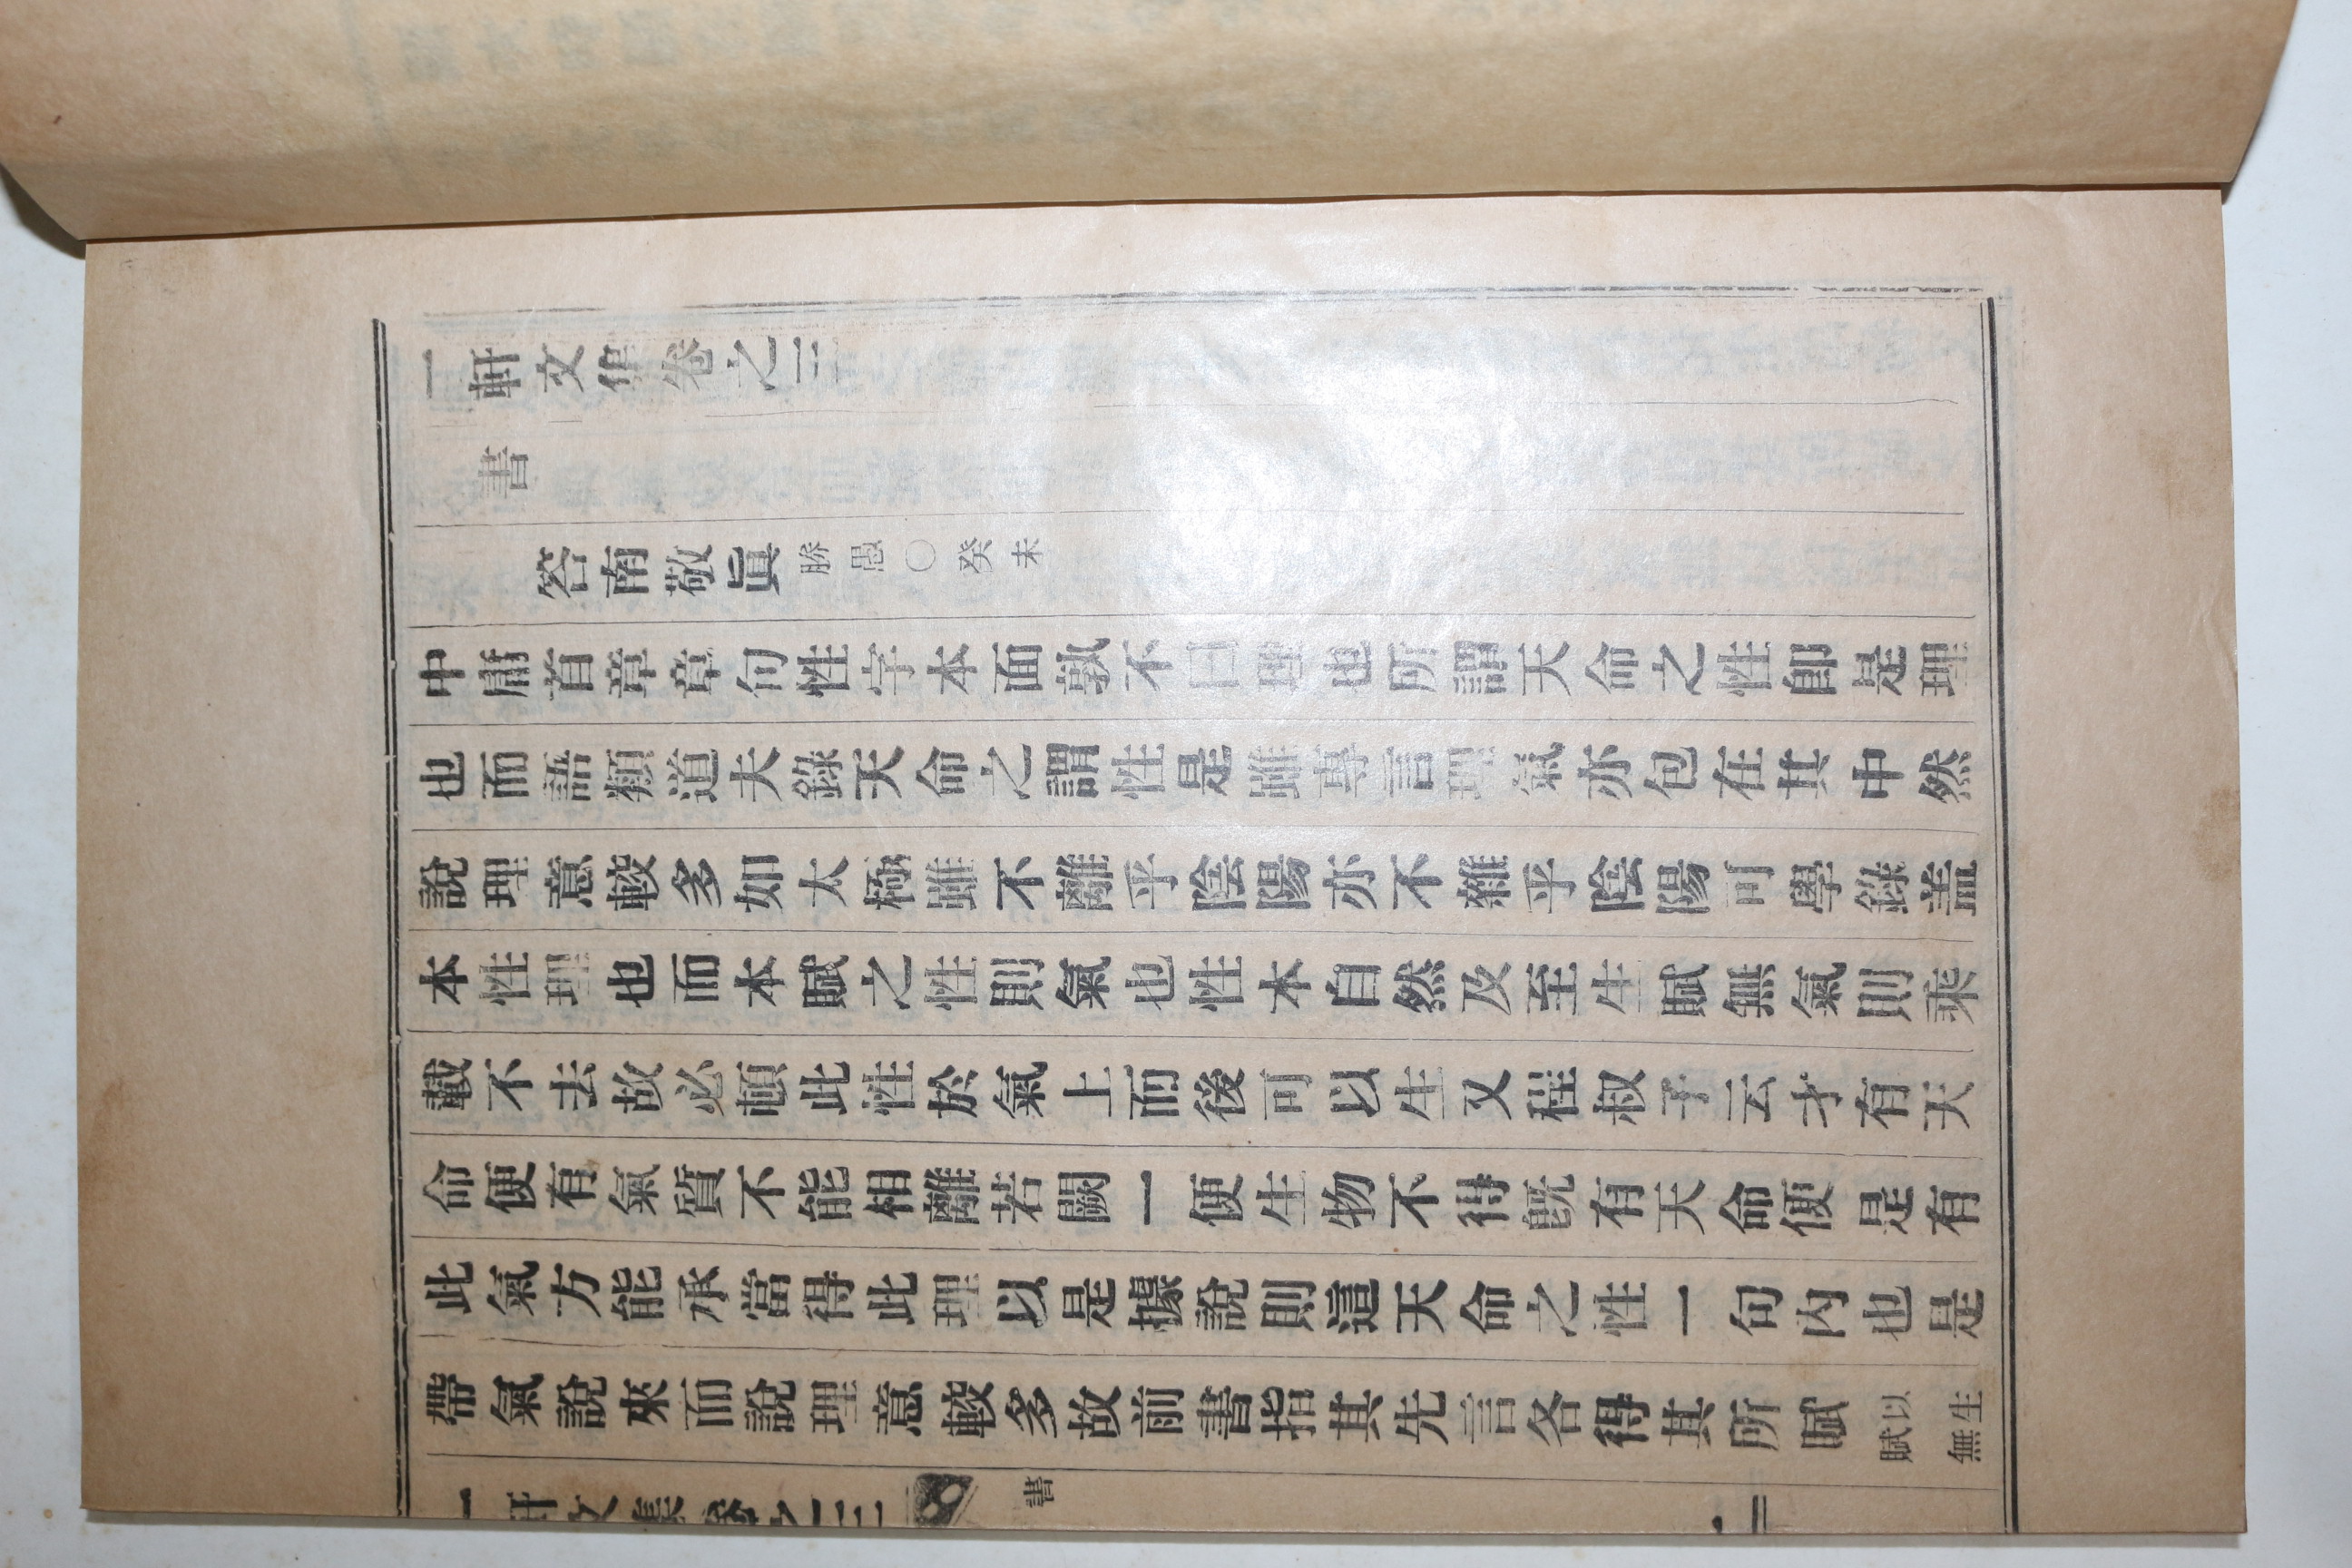 一軒文集卷之三
書
答南敬眞勝愚○癸未
中庸首章章句性字本面孰不曰理也所謂天命之性卽是理
也而語類道夫錄天命之謂性是雖專言理氣亦包在其中然
說理意較多如太極雖不離乎陰陽亦不雜乎陰陽可學錄盖
本性理也而本賦之性則氣也性本自然及至生賦無氣則乘
載不去故必頓此性於氣上而後可以生又程叔子云才有天
命便有氣質不能相離若闕一便生物不得旣有天命便是有
此氣方能承當得此理以是據說則這天命之性一句內也是
帶氣說來而說理意較多故前書指其先言各得其所賦以生
賦無
一軒文集卷之三 書 一